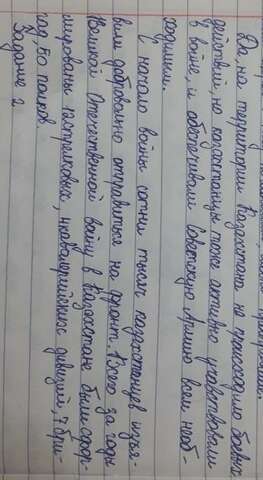 Да, на территории Казахстана не происходило боевых
действий, но казахстанцы тоже активно участвовали
в войне, и обеспечивали Советскую Армию всем необ-
ходимым.
К началу войны сотни тысяч казахстанцев изъя-
вили добровольно отправиться на фронт. Всего за годы
Великой Отечественной войны в Казахстане были сфор-
мированы стрелковых, кавалерийских дивизий, 7 бри-
гад, 50 полков.
Задание 2